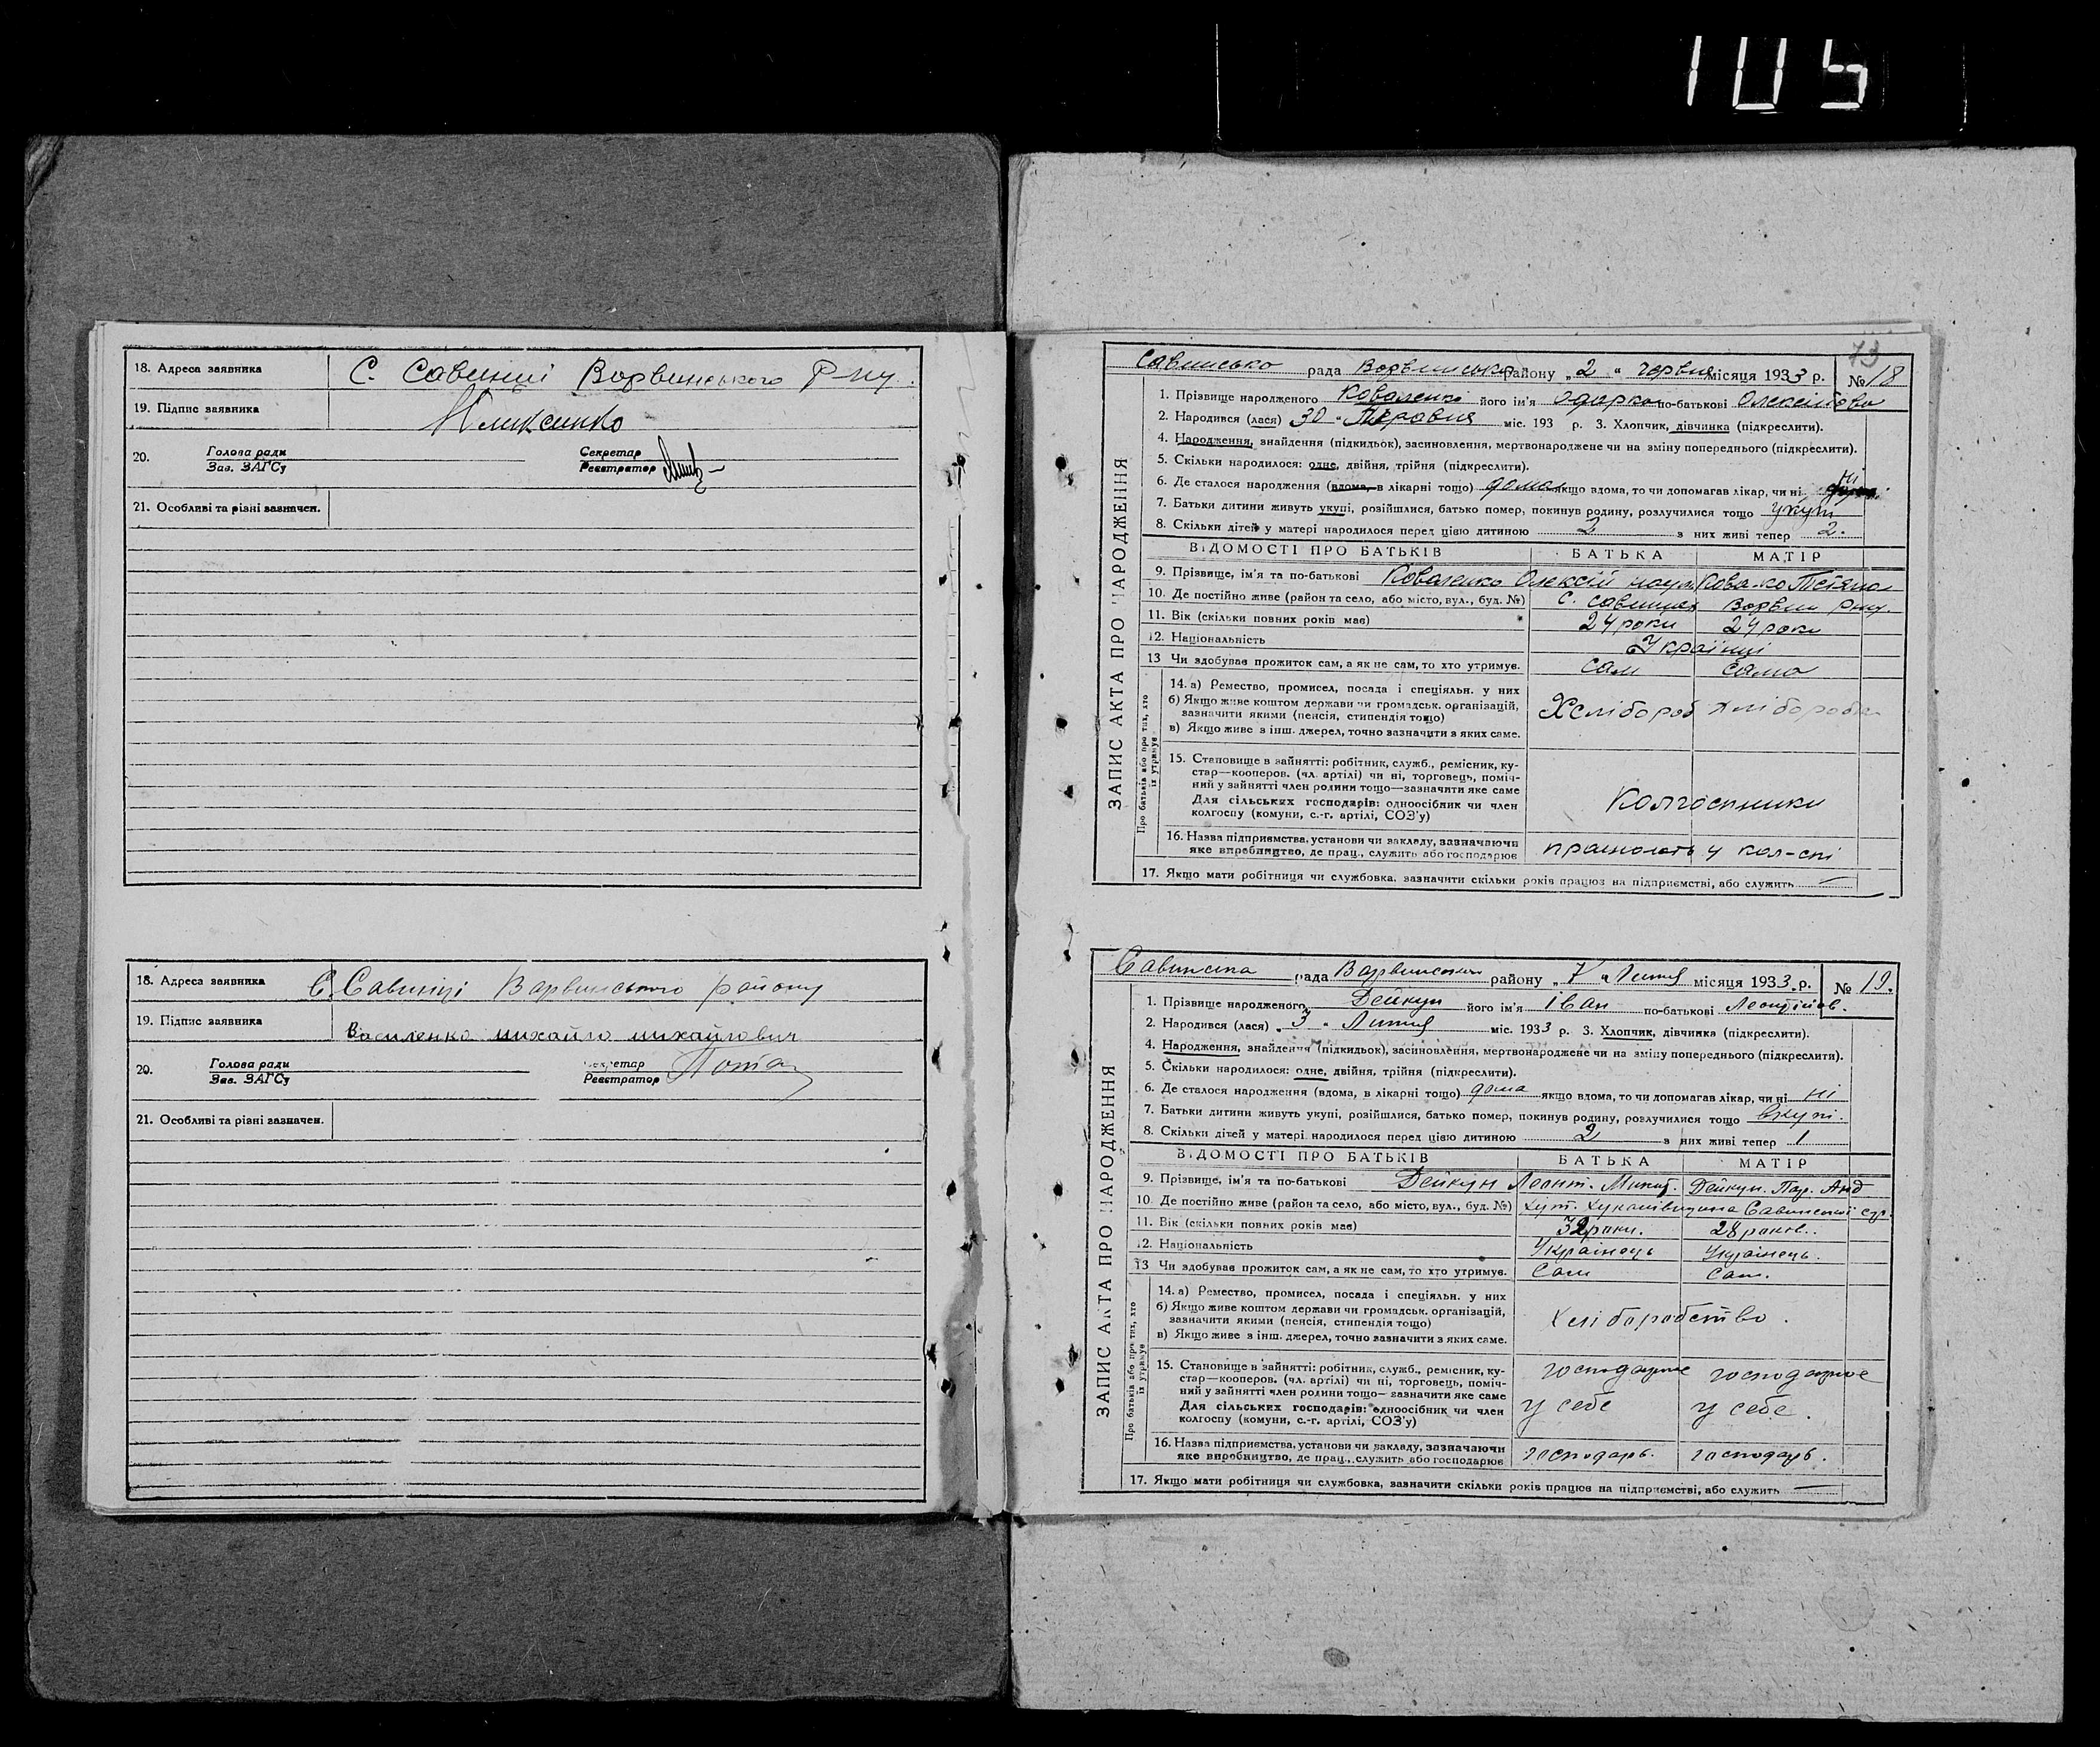 105
18. Адреса заявника С. Савинці Варвинського Р-ну.
19. Підпис заявника
20. Голова ради Секретар
Зав. ЗАГСу Реєстратор
21. Особливі та різні зазначен.
18. Адреса заявника С. Савинці Варвинського району
19. Підпис заявника Василенко михайло михайлович
20. Голова ради Секретар
Зав. ЗАГСу Реєстратор
21. Особливі та різні зазначен.
73
Савинсько рада Варвинсько району „2“ червня місяця 1933 р. № 18
ЗАПИС АКТА ПРО НАРОДЖЕННЯ
1. Прізвище народженого Коваленко його ім'я Одарка по-батькові Олексіївна
2. Народився (лася) 30 “ міс. 193 р. 3. Хлопчик, дівчинка (підкреслити).
4. Народження, знайдення (підкидьок), засиновлення, мертвонароджене чи на зміну попереднього (підкреслити).
5. Скільки народилося: одне, двійня, трійня (підкреслити).
6. Де сталося народження (вдома, в лікарні тощо) дома якщо вдома, то чи допомагав лікар, чи ні ні
7. Батьки дитини живуть укупі, розійшлися, батько помер, покинув родину, розлучилися тощо укупі
8. Скільки дітей у матері народилося перед цією дитиною 2 з них живі тепер 2.
ВІДОМОСТІ ПРО БАТЬКІВ БАТЬКА МАТІР
9. Прізвище, ім'я та по-батькові Коваленко Олексій наум Кова-ко Тетяна
10. Де постійно живе (район та село, або місто, вул., буд. №) С. Савинцях Варвин Р-ну.
11. Вік (скільки повних років має) 24 роки 24 роки
12. Національність Українці
13 Чи здобував прожиток сам, а як не сам, то хто утримує. Сам Сама
Про батьків або про тих, хто їх утримує
14. а) Ремество, промисел, посада і спеціяльн. у них
б) Якщо живе коштом держави чи громадськ. організацій,
зазначити якими (пенсія, стипендія тощо) Хлібороб хлібороб
в) Якщо живе з інш. джерел, точно зазначити з яких саме.
15. Становище в зайнятті: робітник, служб., ремісник, ку-
стар—кооперов. (чл. артілі) чи ні, торговець, поміч-
ний у зайнятті член родини тощо—зазначити яке саме
Для сільських господарів: одноосібник чи член Колгоспники
колгоспу (комуни, с.-г. артілі, СОЗ'у)
16. Назва підприємства, установи чи закладу, зазначаючи
яке виробництво, де прац., служить або господарює працюють у кол-спі
17. Якщо мати робітниця чи службовка, зазначити скільки років працює на підприємстві, або служить —
Савинська рада Варвинськ району „7“ Липня місяця 1933. р. № 19.
ЗАПИС АКТА ПРО НАРОДЖЕННЯ
1. Прізвище народженого Дейкун його ім'я іван по-батькові Леонтійов.
2. Народився (лася) „3“ Липня міс. 1933 р. 3. Хлопчик, дівчинка (підкреслити).
4. Народження, знайдення (підкидьок), засиновлення, мертвонароджене чи на зміну попереднього (підкреслити).
5. Скільки народилося: одне, двійня, трійня (підкреслити).
6. Де сталося народження (вдома, в лікарні тощо) дома якщо вдома, то чи допомагав лікар, чи ні ні
7. Батьки дитини живуть укупі, розійшлися, батько помер, покинув родину, розлучилися тощо вкупі.
8. Скільки дітей у матері народилося перед цією дитиною 2 з них живі тепер 1
ВІДОМОСТІ ПРО БАТЬКІВ БАТЬКА МАТІР
9. Прізвище, ім'я та по-батькові Дейкун Леонт. Микит. Дейкун. Пар. Анд
10. Де постійно живе (район та село, або місто, вул., буд. №) Хут. Савинської с/р.
11. Вік (скільки повних років має) 32 роки. 28 років.
12. Національність Українець Українець.
13 Чи здобував прожиток сам, а як не сам, то хто утримує. Сам Сам.
Про батьків або про тих, хто їх утримує
14. а) Ремество, промисел, посада і спеціяльн. у них
б) Якщо живе коштом держави чи громадськ. організацій,
зазначити якими (пенсія, стипендія тощо) Хліборобство.
в) Якщо живе з інш. джерел, точно зазначити з яких саме.
15. Становище в зайнятті: робітник, служб., ремісник, ку- господарює господарює
стар—кооперов. (чл. артілі) чи ні, торговець, поміч-
ний у зайнятті член родини тощо— зазначити яке саме
Для сільських господарів: одноосібник чи член у себе у себе.
колгоспу (комуни, с.-г. артілі, СОЗ'у)
16. Назва підприємства, установи чи закладу, зазначаючи
яке виробництво, де прац., служить або господарює господарь. господарь.
17. Якщо мати робітниця чи службовка, зазначити скільки років працює на підприємстві, або служить —